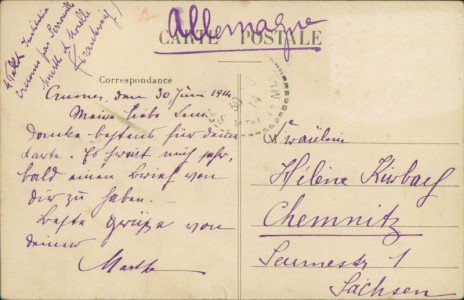 Allemagne
CARTE POSTALE
Correspondance
Crusnes, den 30 Juni 1914.
Meine liebe Leni!
Danke bestens für deine
Karte. Es freut mich sehr,
bald einen Brief von
dir zu haben.
Beste Grüße von
deiner
Marthe
Fräulein
Hélène Kirbach
Chemnitz
Seumestr. 1
Sachsen